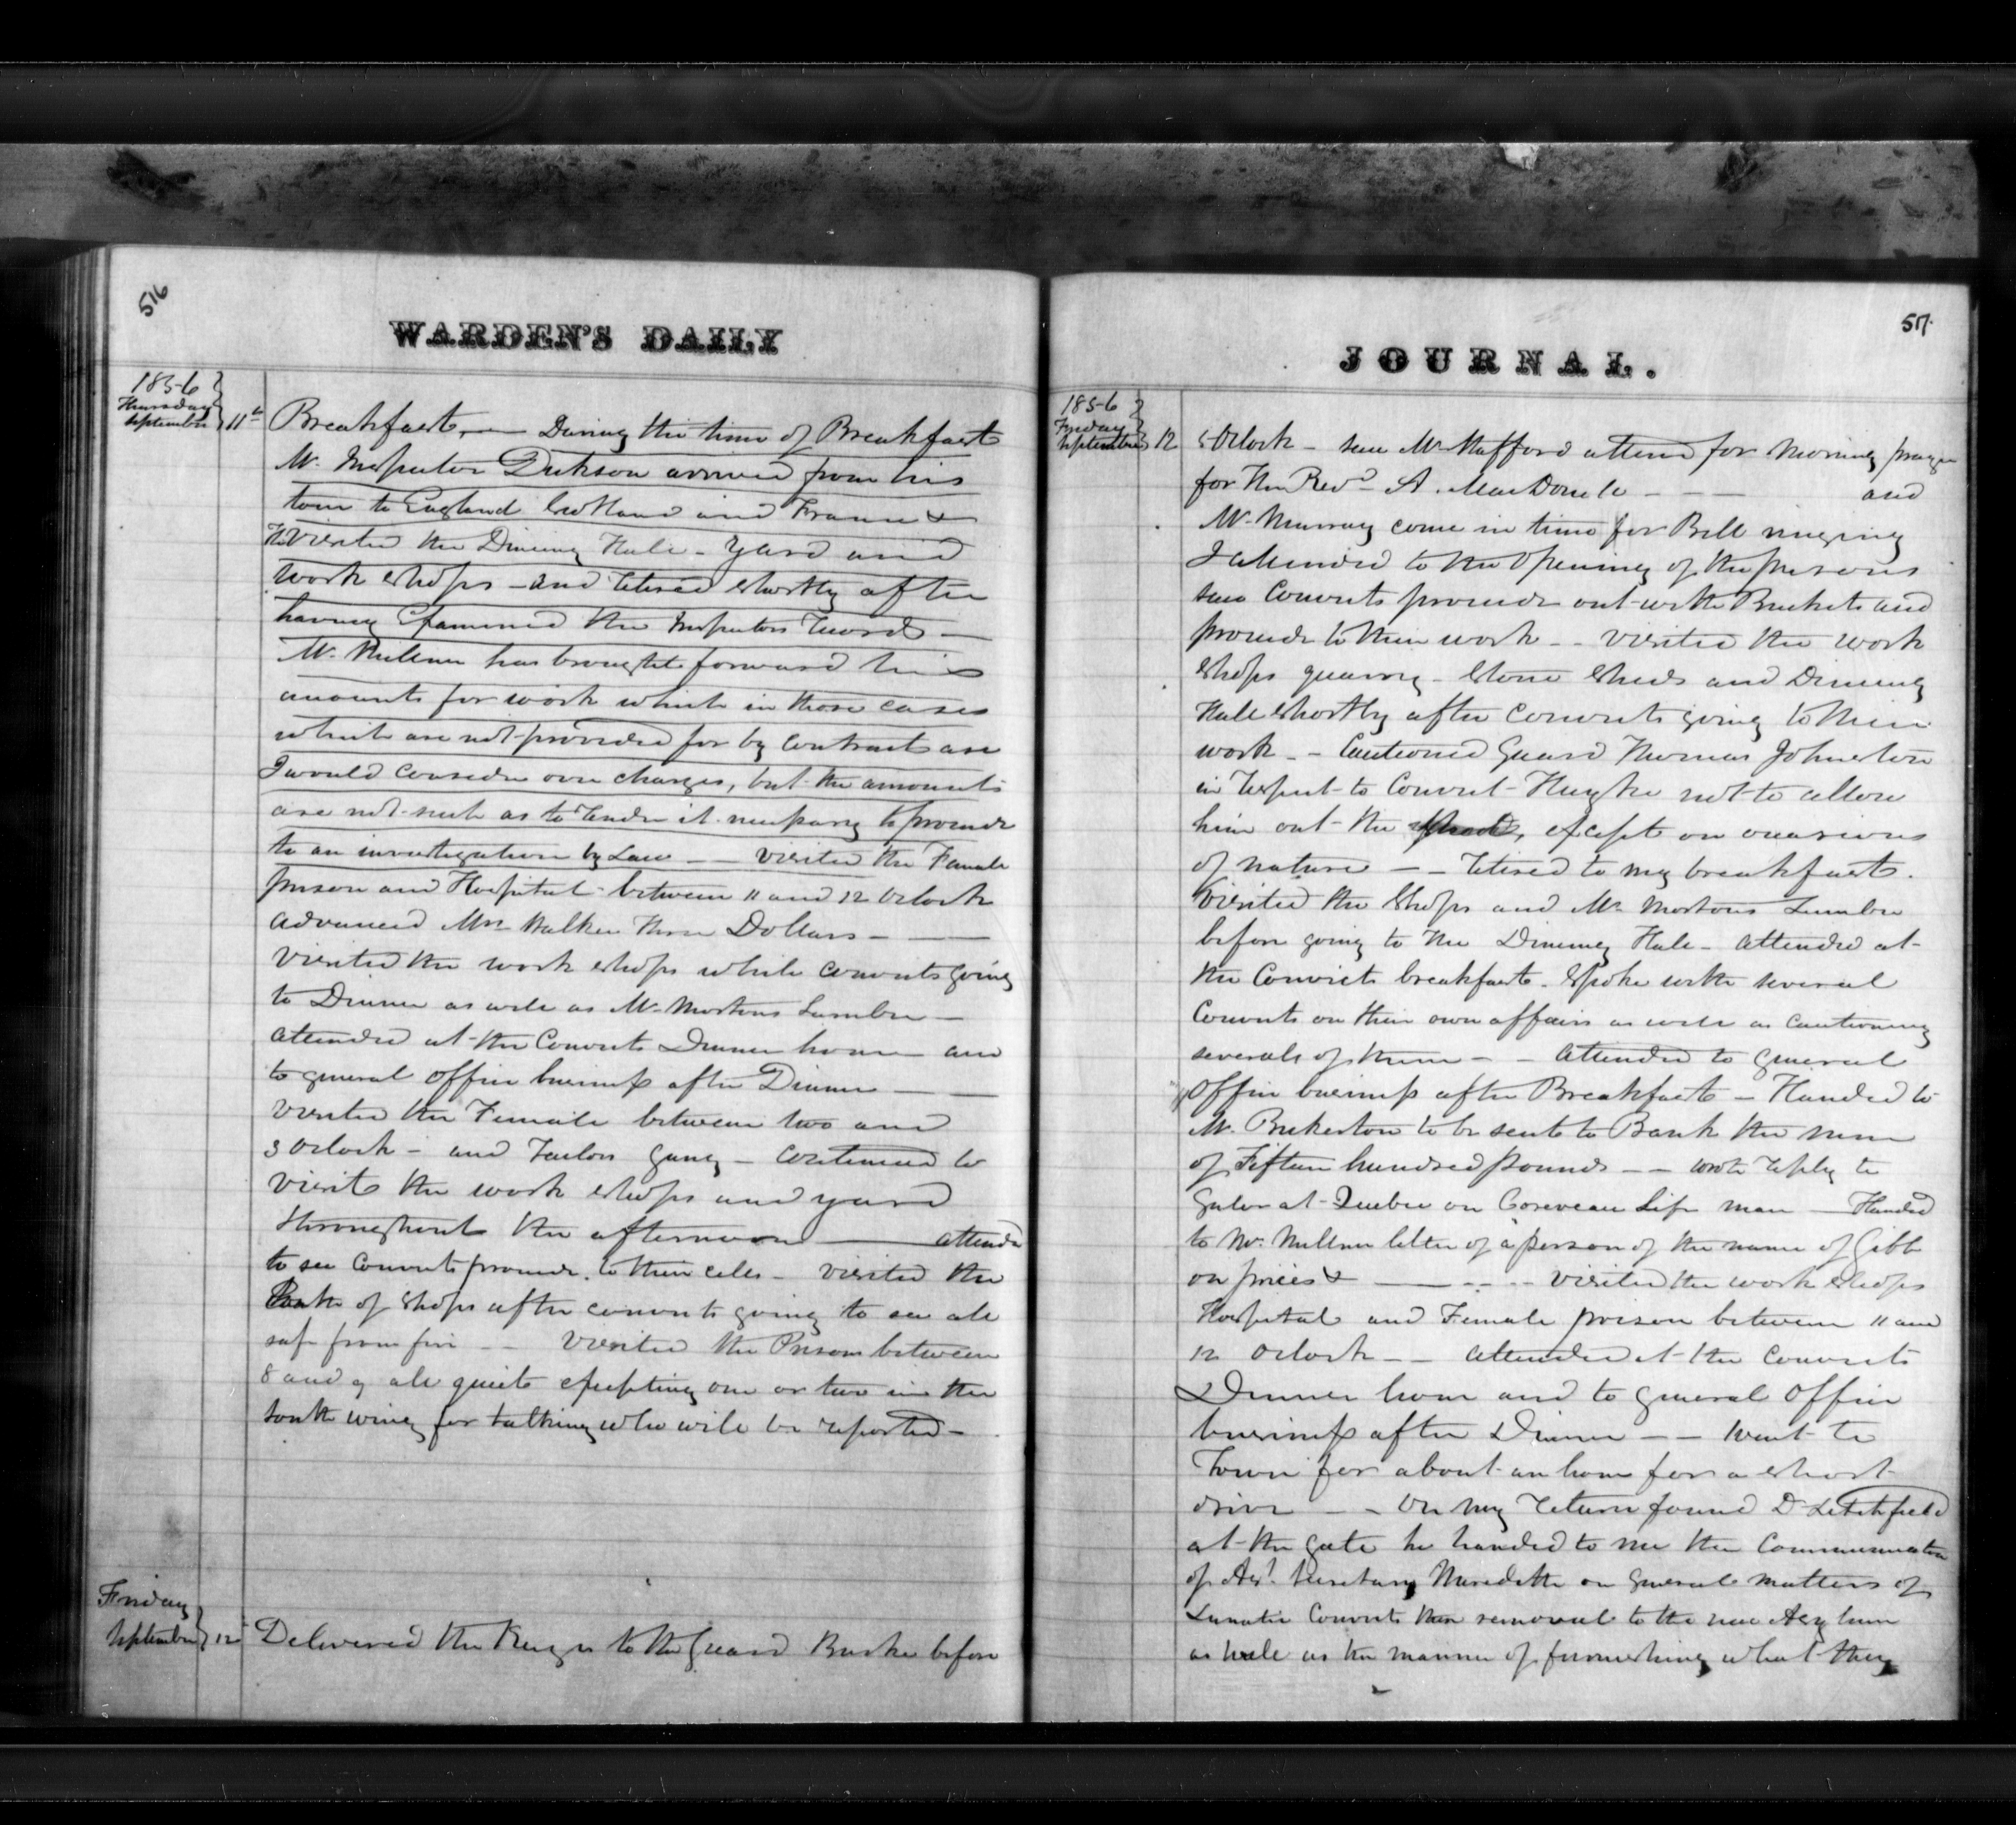 516
WARDEN'S DAILY
1856
Thursday
September 11th
Breakfast, — During the time of Breakfast
Mr. Inspector Dickson arrived from his
tour to England Scotland and France &
He visited the Dining Hall - Yard and
work shops - and retired shortly after
having Examined the Inspectors records —
Mr. Mullin has brought forward his
amounts for work which in those cases
which are not provided for by Contract are
I would consider over charges, but the amounts
are not such as to render it necessary to proceed
to an investigation by Law — — visited the Female
prison and Hospital between 11 and 12 Oclock
advanced Mrs Walker three Dollars — —
visited the work shops while convicts going
to Dinner as well as Mr Mortons Lumber —
attended at the Convicts Dinner hour — and
to general office business after Dinner — —
visited the Female between two and
3 Oclock - and Tailors Gang - continued to
visit the work shops and yard
throughout the afternoon — attended
to see Convicts proceed to their cells - visited the
of shops after convicts going to see all
safe from fire — — visited the Prison between
8 and 9 all quiet excepting one or two in the
south wing for talking who will be reported —
Friday
September 12
Delivered the Keys to the Guard Burke before
JOURNAL.
517.
1856
Friday
September 12
5 Oclock - saw Mr Stafford attend for morning prayer
for the Revd. A. MacDonell - - - and
Mr. Murray come in time for Bell ringing
I attended to the Opening of the prisons
saw Convicts proceed out with Buckets and
proceed to their work - - visited the work
shops quarry - stone sheds and Dining
Hall shortly after convicts going to their
work - - Cautioned Guard Thomas Johnston
in respect to Convict not to allow
him out the except on occasions
of nature — — retired to my breakfast.
Visited the shops and Mr. Mortons Lumber
before going to the Dining Hall - attended at
the Convict breakfast. spoke with several
Convicts on their own affairs as well as cautioning
severals of them - - attended to general
office business after Breakfast - Handed to
Mr. Bickerton to be sent to Bank the sum
of Fifteen hundred pounds - - wrote reply to
at Quebec on Life man — Handed
to Mr. Mullin letter of a person of the name of Gibb
on prices & — - - - visited the work shops
Hospital and Female prison between 11 and
12 Oclock - - attended at the Convicts
Dinner hour and to general office
business after Dinner - - Went to
Town for about an hour for a short
drive - - On my return found Dr Litchfield
at the gate he handed to me the Communication
of Asst. Secretary Meredith on general matters of
Lunatic Convicts their removal to the new Asylum
as well as the manner of furnishing what they